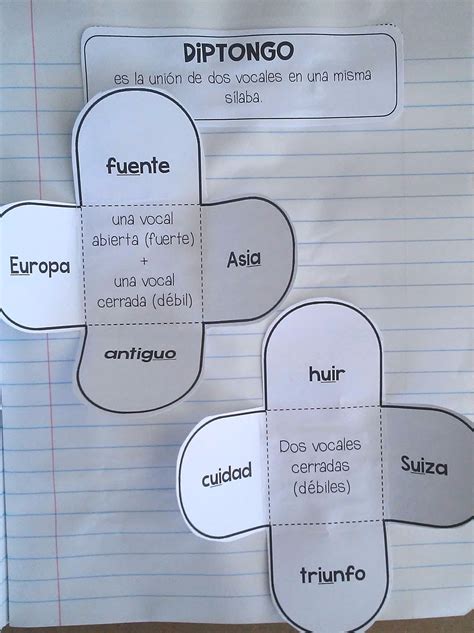 DiPTONGO
es la unión de dos vocales en una misma
sílaba.
fuente
una vocal
abierta (fuerte)
+
una vocal
cerrada (débil)
Europa
Asia
antiguo
huir
Dos vocales
cerradas
(débiles)
cuidad
Suiza
triunfo